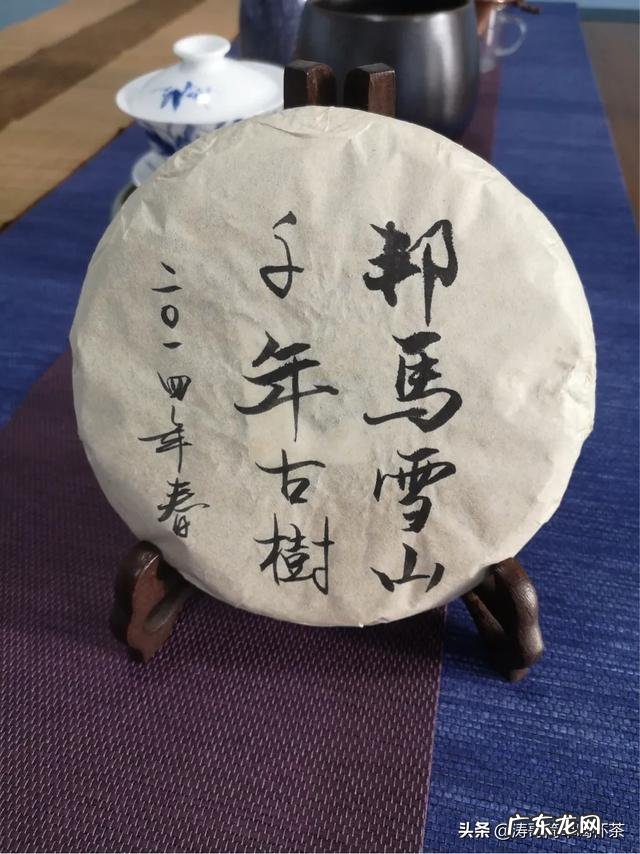 邦馬雪山
千年古樹
二〇一四年春
头条
广东龙网